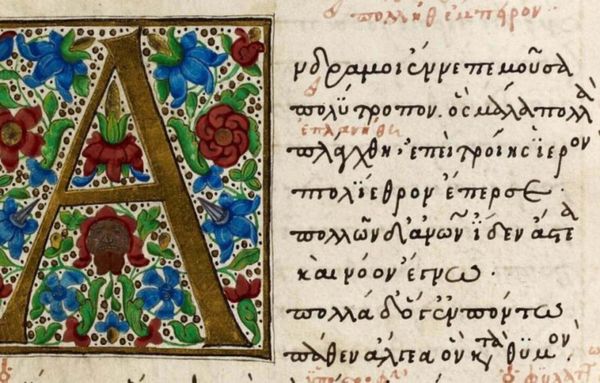 πολλὴ ἐμπειρον
Ανδρα μοι ἔννεπε μοῦσα
πολύτροπον. ὃς μάλα πολλὰ
ἐπλανήθη
πλάγχθη· ἐπεὶ τροίης ἱερὸν
πτολίεθρον ἔπερσε
πολλῶν δ' ἀν͞ων ἴδεν ἄστεα
καὶ νόον ἔγνω.
πολλὰ δ' ὅγ' ἐν πόντω
πάθεν ἄλγεα ὃν κτὰ θῦμὸν